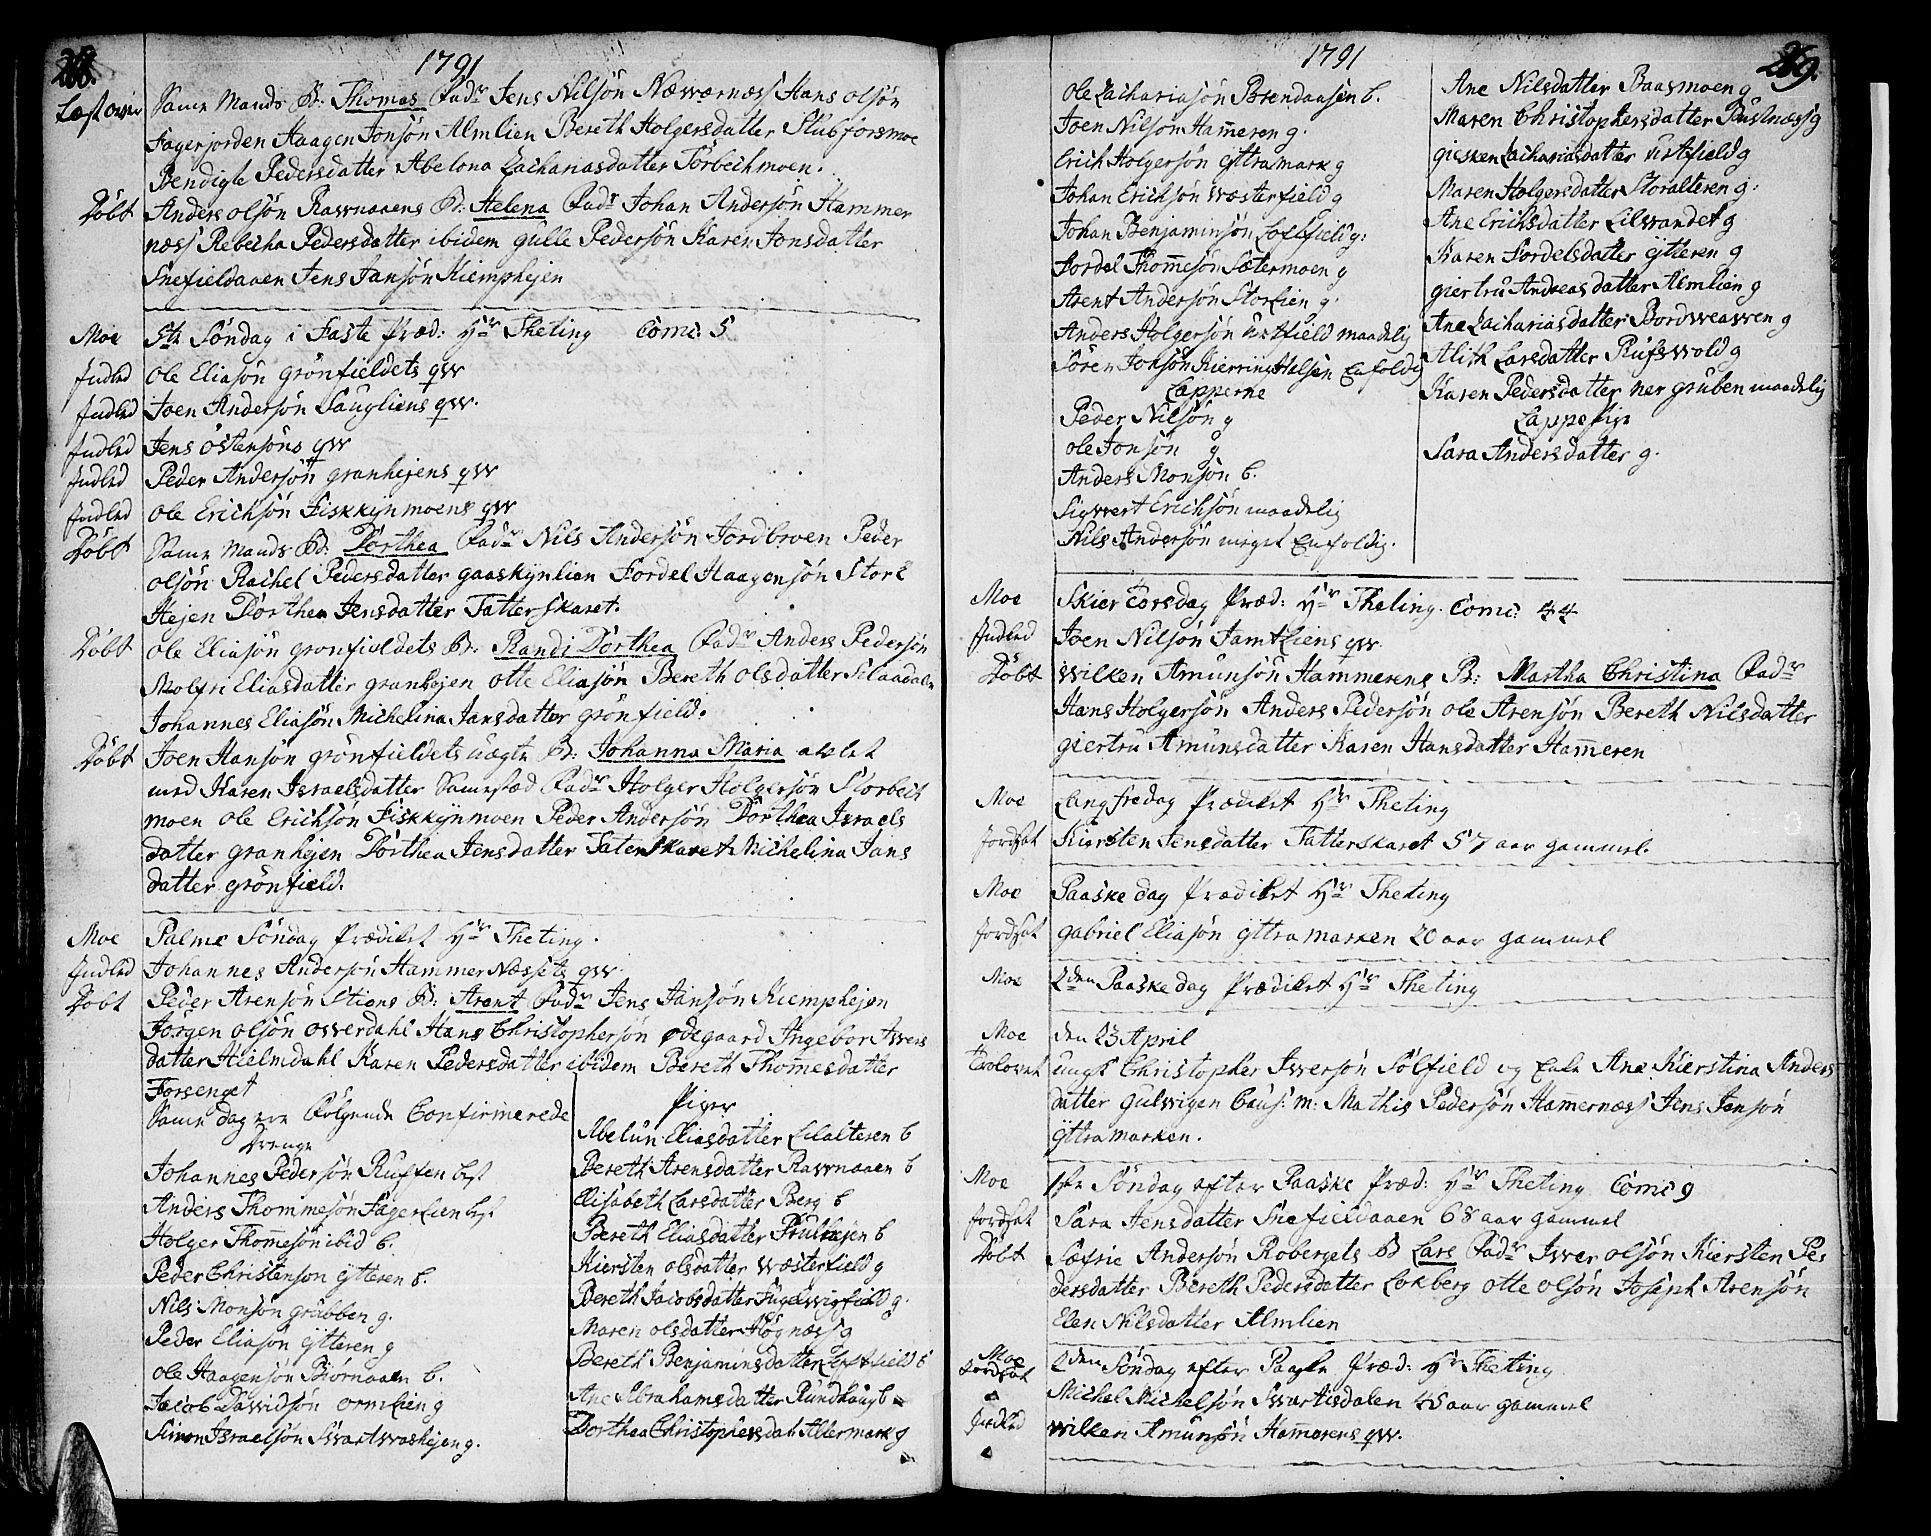 288.
1791
Læst over Same Mands B: Thomas Fadr Jens Nilsøn Næwærnæss Hans olsøn
Fagerjorden Haagen Jonsøn Almlien Bereth Holgersdatter Stubforsmoe
Bendigte Pedersdatter Abelona Zachariasdatter Tørbechmoen.
Døbt Anders olsøn Rawnaaens B: Helena Fadr Johan Andersøn Hammer
næss Rebecha Pedersdatter ibidem gulle Pedersøn Karen Jonsdatter
Snefieldaaen Jens Jansøn Kiemphejen
Moe 5te Søndag i Faste Præd: Hr Theting Comc 5
Indled Ole Eliasøn grønfieldets qvv
Indled Joen Andersøn Saugliens qvv.
Indled Jens Østensøns qvv
Indled Peder Andersøn granhejens qvv
Indled Ole Erichsøn Fiskkynmoens qvv
Døbt Same Mands B: Dorthea Fadr Nils Andersøn Jordbroen Peder
olsøn Rachel Pedersdatter gaaskynlien Fordel Haagensøn Stor
Hejen Dorthea Jensdatter Tatterskaret.
Døbt Ole Eliasøn grønfieldets B: Randi Dorthea Fadr Anders Pedersøn
Molfri Eliasdatter granhejen otte Eliasøn Bereth olsdatter
Johannes Eliasøn Michelina Jansdatter grønfield.
Døbt Joen Hansøn grønfieldets uægte B: Johanna Maria awlet
med Karen Israelsdatter Samestæd Fadr Holger Holgersøn Storbech
moen ole Erichsøn Fiskkynmoen Peder Andersøn Dorthea Israels
datter granhejen Dorthea Jensdatter Taterskaret Michelina Jans
datter grønfield.
Moe Palme Søndag Prædiket Hr Theting.
Indled Johannes Andersøn HammerNæssets qvv.
Døbt Peder Arensøn Stiens B: Arent Fadr Jens Jansøn Kiemphejen
Jørgen olsøn owerdahl Hans Christophersøn Ødegaard Ingebor Iwers
datter Hielmdahl Karen Pedersdatter ibidem Bereth Thomesdatter
Forsenget
Same dag ere Følgende Confirmerede
Drenge
Johannes Pedersøn Ruffen best
Anders Thommesøn Fagerlien best.
Holger Thomesøn ibid b.
Peder Christensøn ytteren b.
Nils Monsøn grubben g.
Peder Eliasøn ytteren g
Ole Haagensøn Biørnaaen b.
Jacob Dawidsøn ormlien g
Simon Israelsøn Swartwashejen g.
Piger
Abelun Eliasdatter Lilalteren b
Bereth Arensdatter Rawnaaen b
Elisabeth Larsdatter Berg b
Bereth Eliasdatter Prulhejen b
Kiersten olsdatter wæsterfield g
Bereth Jacobsdatter Fugelwigfield g.
Maren olsdatter Høgnæss g
Bereth Benjaminsdatter Loftfield b
Ane Abrahamsdatter Rundhaug b
Dorthea Christophersdat Altermark g
1791
289.
Ole Zachariasøn Brendaasen b.
Joen Nilsøn Hameren g.
Erich Holgersøn yttramark g
Johan Erichsøn wæsterfield g
Johan Benjaminsøn Loftfield g:
Fordel Thomesøn Sætermoen g
Arent Andersøn Storlien g.
Anders Holgersøn urtfield maadelig
Søren Jonsøn Kierringhalsen Enfoldig
Lapperne
Peder Nilsøn g
Ole Jonsøn g
Anders Monsøn b.
Siwert Erichsøn maadelig
Nils Andersøn meget Enfoldig.
Ane Nilsdatter Baasmoen g
Maren Christophersdatter Buslnæss g
giesken Zachariasdatter urtfield g
Maren Holgersdatter Storalteren g:
Ane Erichsdatter Lilwandet g
Karen Fordelsdatter ytteren g
giertru Andreasdatter Almlien g
Ane Zachariasdatter Bordweawen g
Alith Larsdatter Rufswold g
Karen Pedersdatter ner gruben maadelig
Lappepige
Sara Andersdatter g.
Moe Skiertorsdag Præd: Hr Theting. Comc: 44
Indled Joen Nilsøn Jamtliens qvv.
Døbt Wilken Amunsøn Hammerens B: Martha Christina Fadr
Hans Holgersøn Anders Pedersøn ole Arensøn Bereth Nilsdatter
giertru Amunsdatter Karen Hansdatter Hameren
Moe Langfredag Prædiket Hr Theting
Jordsat Kiersten Jensdatter Tatterskaret 57 aar gammel.
Moe Paaskedag Prædiket Hr Theting
Jordsat Gabriel Eliasøn yttramarken 20 aar gammel
Moe 2den Paaskedag Prædiket Hr Theting
Moe den 23 April
Trolovet ungk Christopher Iwersøn Sølfield og Enke Ane Kierstina Anders
datter gulwigen Caus: m: Mathis Pedersøn Hamernæss Jens Jensøn
yttramarken.
Moe 1ste Søndag efter Paaske Præd: Hr Theting Comc 9
Jordsat Sara Jensdatter Snefieldaaen 68 aar gammel
Døbt Sæfrie Andersøn Robergets B Lars Fadr Iwer olsøn Kiersten Pe
dersdatter Bereth Pedersdatter Lokberg otte olsøn Joseph Arensøn
Elen Nilsdatter Almlien
Moe 2den Søndag efter Paaske Præd: Hr Theting
Jordsat Michel Michelsøn Swartisdalen 45 aar gammel
Indled Wilken Amunsøn Hamerens qvv.